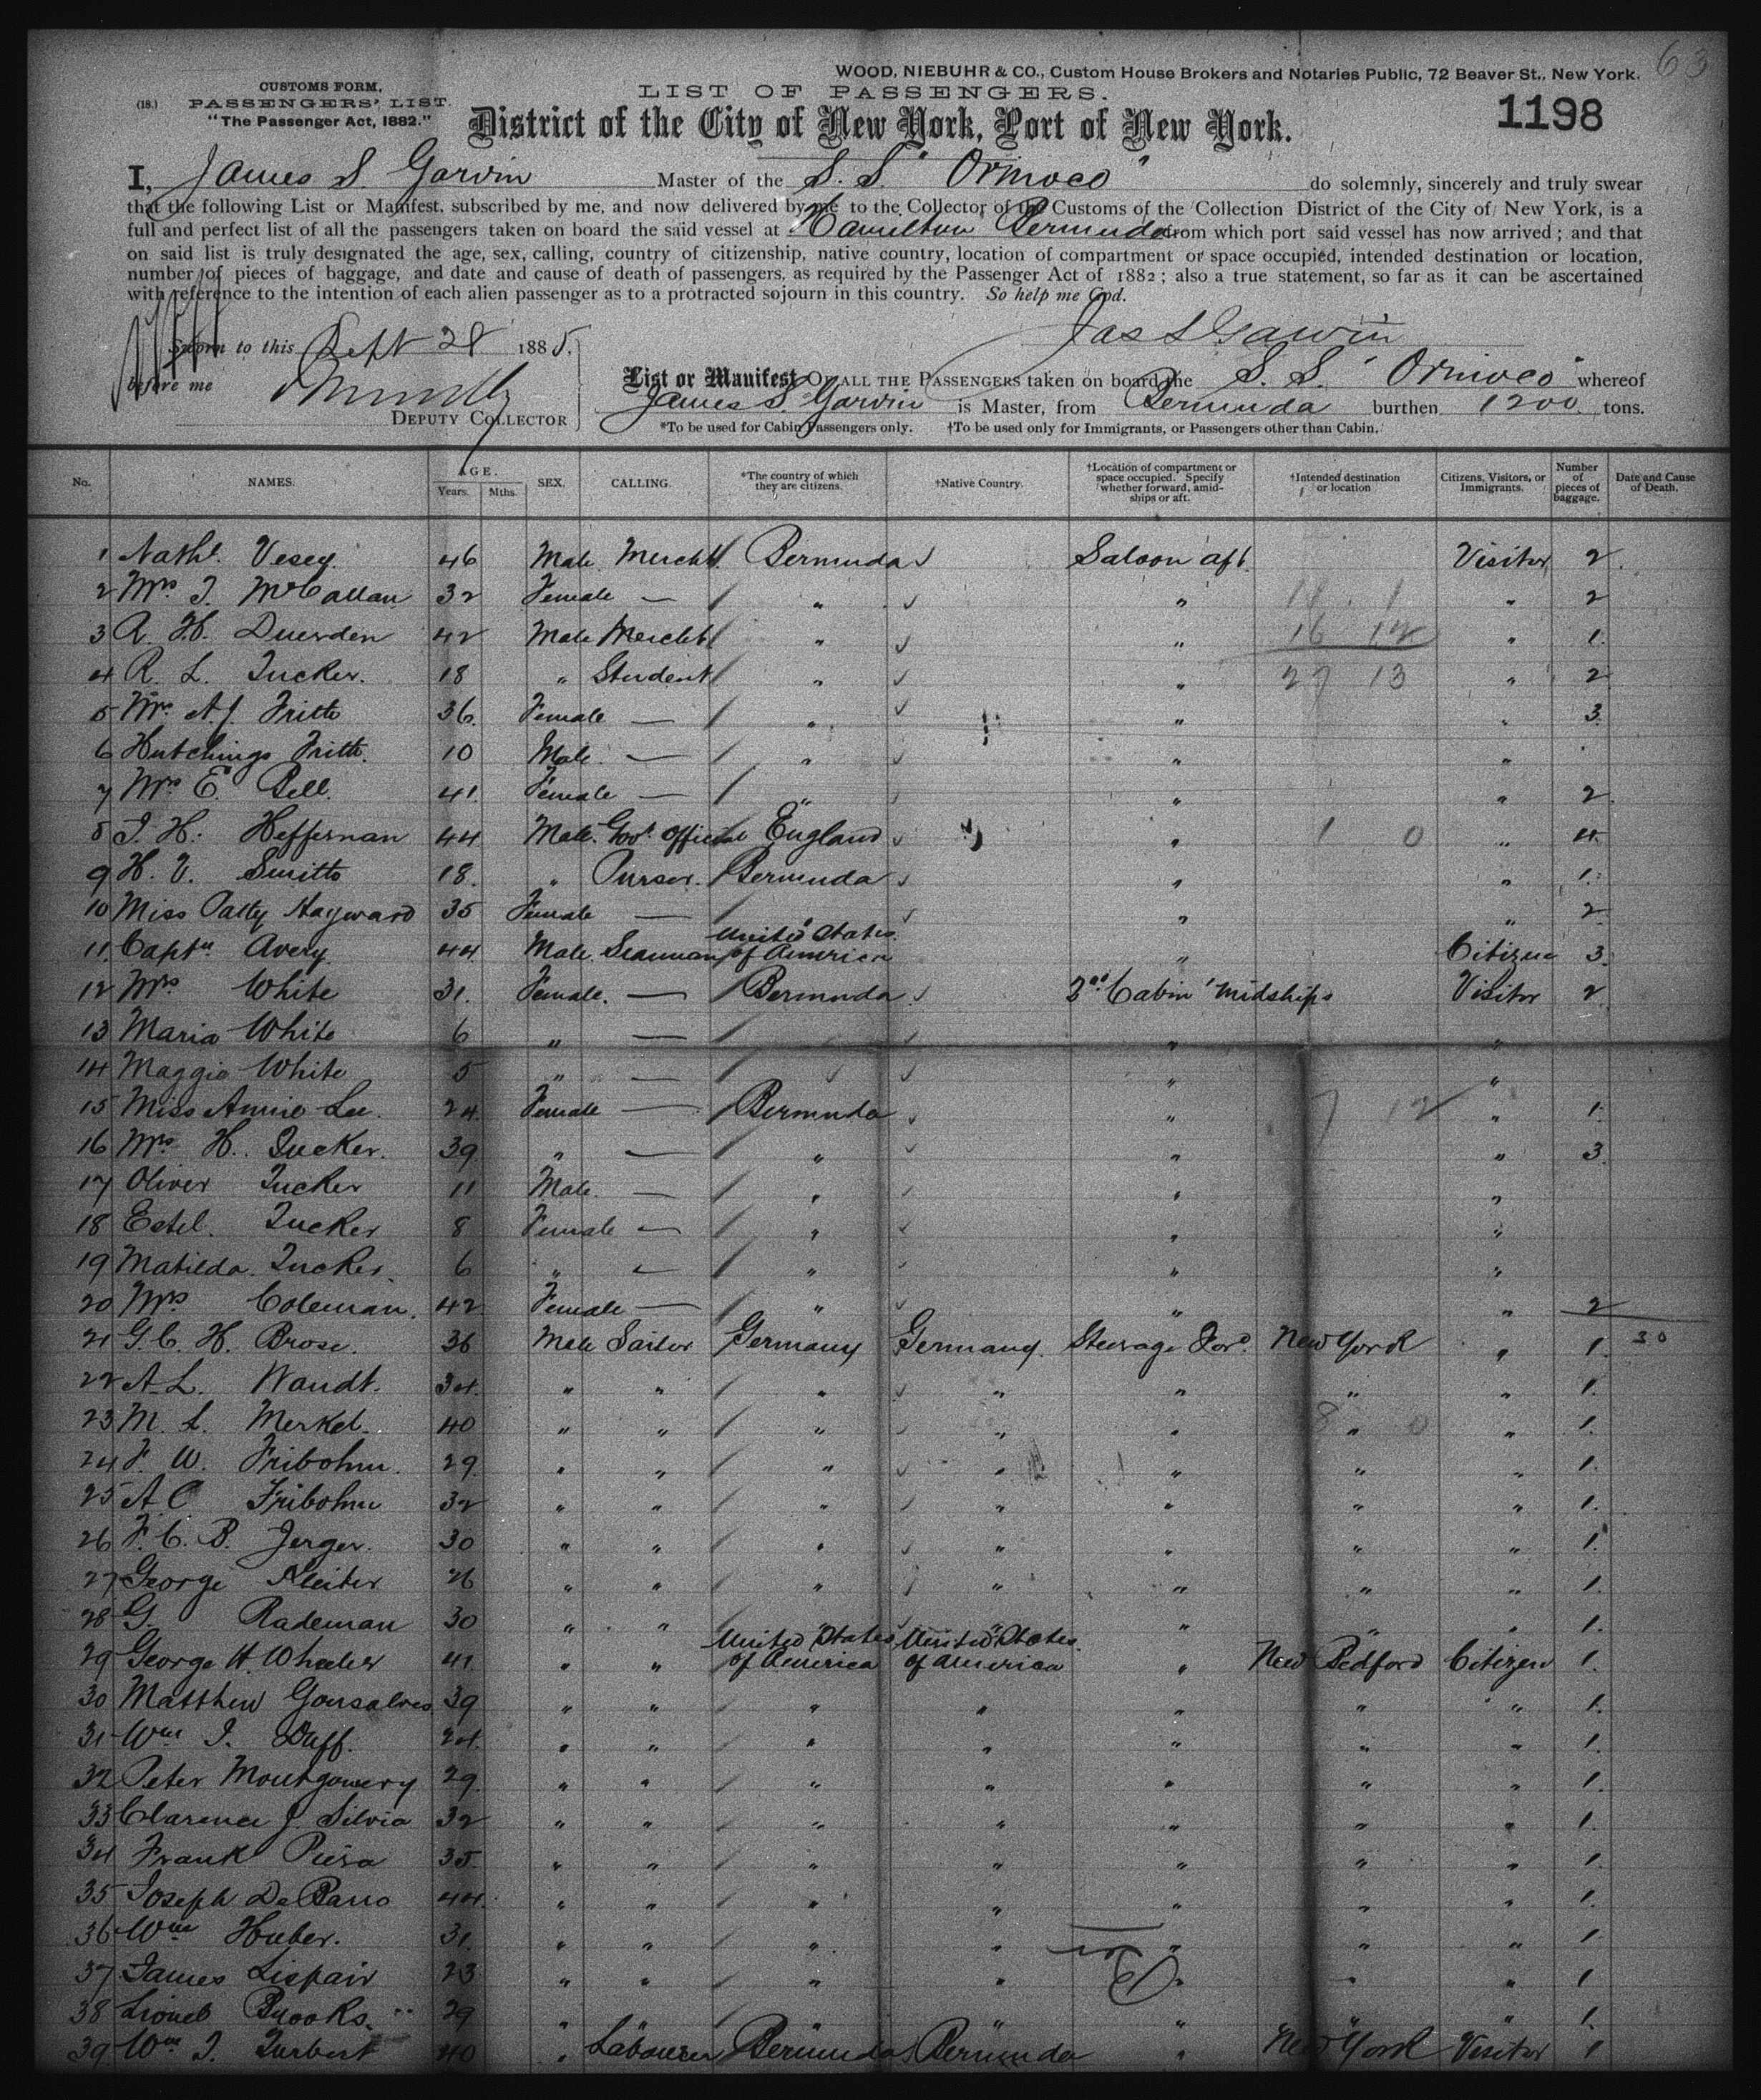 63
WOOD, NIEBUHR & CO., Custom House Brokers and Notaries Public, 72 Beaver St., New York.
(18.) CUSTOMS FORM,
PASSENGERS' LIST.
"The Passenger Act, 1882."
LIST OF PASSENGERS.
District of the City of New York, Port of New York.
1198
I, James S. Garvin Master of the S.S. "Orinoco" do solemnly, sincerely and truly swear
that the following List or Manifest, subscribed by me, and now delivered by me to the Collector of the Customs of the Collection District of the City of New York, is a
full and perfect list of all the passengers taken on board the said vessel at Hamilton Bermuda from which port said vessel has now arrived; and that
on said list is truly designated the age, sex, calling, country of citizenship, native country, location of compartment or space occupied, intended destination or location,
number of pieces of baggage, and date and cause of death of passengers, as required by the Passenger Act of 1882; also a true statement, so far as it can be ascertained
with reference to the intention of each alien passenger as to a protracted sojourn in this country. So help me God.
Jas S Garvin
Sworn to this Sept 28 1885.
before me
DEPUTY COLLECTOR
List or Manifest OF ALL THE PASSENGERS taken on board the S.S. "Orinoco" whereof
James S. Garvin is Master, from Bermuda burthen 1200 tons.
*To be used for Cabin Passengers only. †To be used only for Immigrants, or Passengers other than Cabin.
No. NAMES. AGE. Years. Mths. SEX. CALLING. *The country of which they are citizens. †Native Country. †Location of compartment or space occupied. Specify whether forward, amidships or aft. †Intended destination or location Citizens, Visitors, or Immigrants. Number of pieces of baggage. Date and Cause of Death.
1 Nathl. Vesey 46 Male Mercht. Bermuda Saloon aft. Visitor 2
2 Mrs J. McCallan 32 Female — " " 11 1 " 2
3 R. H. Duerden 42 Male Mercht " " 16 12 " 1
4 R. L. Tucker. 18 " Student " " 27 13 " 2
5 Mrs A.J. Fritts 36 Female — " " " 3
6 Hutchings Fritts 10 Male — " " "
7 Mrs E. Bell 41 Female — " " " 2
8 J. H. Heffernan 44 Male Govt. Official England " 1 0 " 4
9 H. V. Smith 18 " Purser. Bermuda " " 1
10 Miss Patty Hayward 35 Female — " " " 2
11 Captn Avery 44 Male Seaman United States of America " Citizen 3
12 Mrs White 31 Female — Bermuda 2nd Cabin midships Visitor 2
13 Maria White 6 " — " "
14 Maggie White 5 " — " "
15 Miss Annie Lee 24 Female — Bermuda " 7 12 " 1
16 Mrs H. Tucker 39 " — " " " 3
17 Oliver Tucker 11 Male — " " "
18 Estel. Tucker 8 Female — " " "
19 Matilda Tucker 6 " — " " "
20 Mrs Coleman 42 Female — " " " 2
21 G. C. H. Brose. 36 Male Sailor Germany Germany Steerage For'd New York " 1 30
22 A L. Wandt. 34 " " " " " " " 1
23 M. L. Merkel 40 " " " " " 8 " 0 " 1
24 F. W. Fribohm 29 " " " " " " " 1
25 A C Fribohm 32 " " " " " " " 1
26 F. C. B. Jerger. 30 " " " " " " " 1
27 George 26 " " " " " " " 1
28 G. Rademan 30 " " " " " " " 1
29 George H. Wheeler 41 " " United States of America United States of America " New Bedford Citizen 1
30 Matthew Gonsalves 39 " " " " " " " 1
31 Wm J. Duff. 24 " " " " " " " 1
32 Peter Montgomery 29 " " " " " " " 1
33 Clarence J. Silvia 32 " " " " " " " 1
34 Frank 35 " " " " " " " 1
35 Joseph 44 " " " " " " " 1
36 Wm Huber. 31 " " " " " " " 1
37 James 23 " " " " " " " 1
38 Lionel Brooks. 29 " " " " " " " 1
39 Wm J. 40 " Labourer Bermuda Bermuda " New York Visitor 1